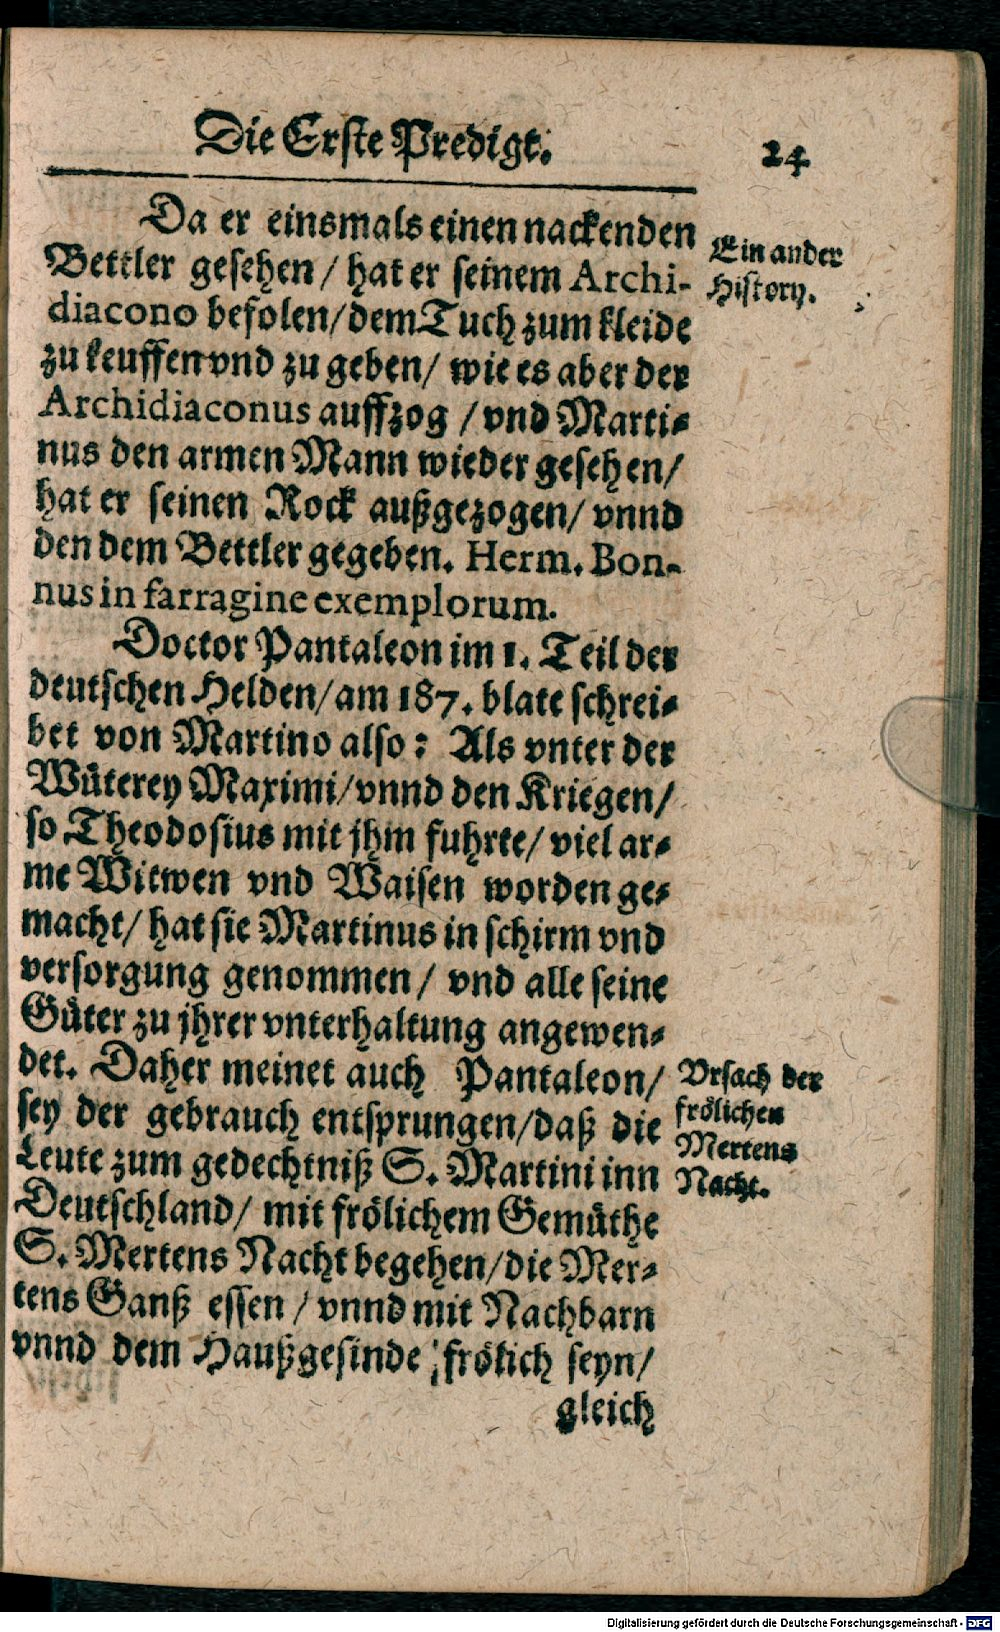 Die Erste Predigt.
24
Da er einsmals einen nackenden
Bettler gesehen / hat er seinem Archi-
diacono befolen/dem Tuch zum kleide
zu keuffen vnd zu geben/ wie es aber der
Archidiaconus auffzog / vnd Marti-
nus den armen Mann wieder gesehen/
hat er seinen Rock außgezogen/ vnnd
den dem Bettler gegeben. Herm. Bon-
nus in farragine exemplorum.
Ein ander
History.
Doctor Pantaleon im 1. Teil der
deutschen Helden/am 187. blate schrei-
bet von Martino also: Als vnter der
Wüterey Maximi/vnnd den Kriegen/
so Theodosius mit jhm fuhrte/ viel ar-
me Witwen vnd Waisen worden ge-
macht/ hat sie Martinus in schirm vnd
versorgung genommen/ vnd alle seine
Güter zu jhrer vnterhaltung angewen-
det. Daher meinet auch Pantaleon/
sey der gebrauch entsprungen/daß die
Leute zum gedechtniß S. Martini inn
Deutschland/ mit frölichem Gemüthe
S. Mertens Nacht begehen/die Mer-
tens Ganß essen / vnnd mit Nachbarn
vnnd dem Haußgesinde frölich seyn/
gleich
Vrsach der
frölichen
Mertens
Nacht.
Digitalisierung gefördert durch die Deutsche Forschungsgemeinschaft - DFG